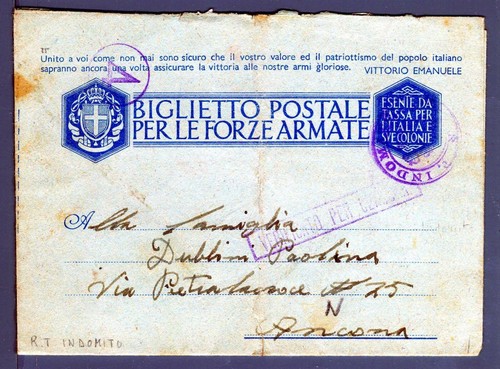 Unito a voi come non mai sono sicuro che il vostro valore ed il patriottismo del popolo italiano
sapranno ancora una volta assicurare la vittoria alle nostre armi gloriose.
VITTORIO EMANUELE
BIGLIETTO POSTALE
PER LE FORZE ARMATE
ESENTE DA
TASSA PER
L'ITALIA E
SVE COLONIE
R. T. INDOM
VERIFICATO PER CENSURA
Alla famiglia
Dubbini Paolina
Via Pietralacroce N 25
N
Ancona
R.T INDOMITO